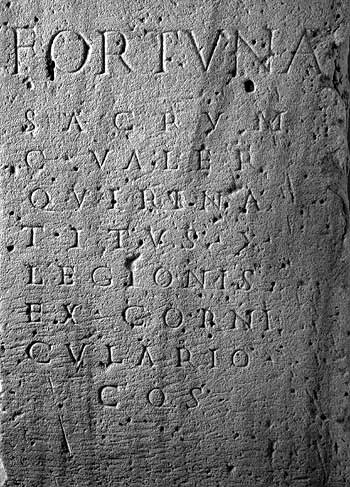 FORTVNA
SACRVM
C · VALER
QVIRINA
TITVS ·
LEGIONIS ·
EX CORNI
CVLARIO
COS ·